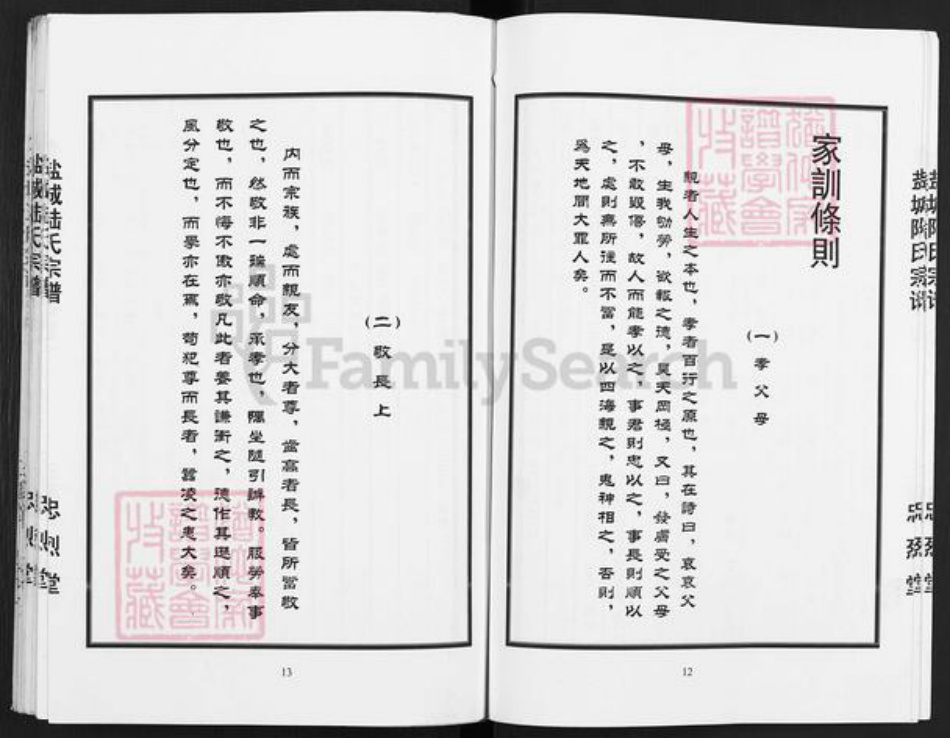 家訓條則
(一)孝父母
親者人生之本也，孝者百行之原也，其在詩曰，哀哀父
母，生我劬勞，欲報之德，昊天罔極，又曰，發膚受之父母
，不敢毀傷，故人而能孝以之，事君則忠以之，事長則順以
之，處則無所往而不當，是以四海親之，鬼神相之，否則，
爲天地間大罪人矣。
12
(二)敬長上
內而宗族，處而親友，分大者尊，齒高者長，皆所當敬
之也，然敬非一端順命，承孝也，隅坐隨引辦教。服勞奉事
敬也，而不悔不傲亦敬凡此者養其謙衝之，德作其遜順之，
風分定也，而學亦在焉，苟犯尊而長者，囂凌之患大矣。
13
盐城陆氏宗谱
忠烈堂
盐城陆氏宗谱
忠烈堂
FamilySearch